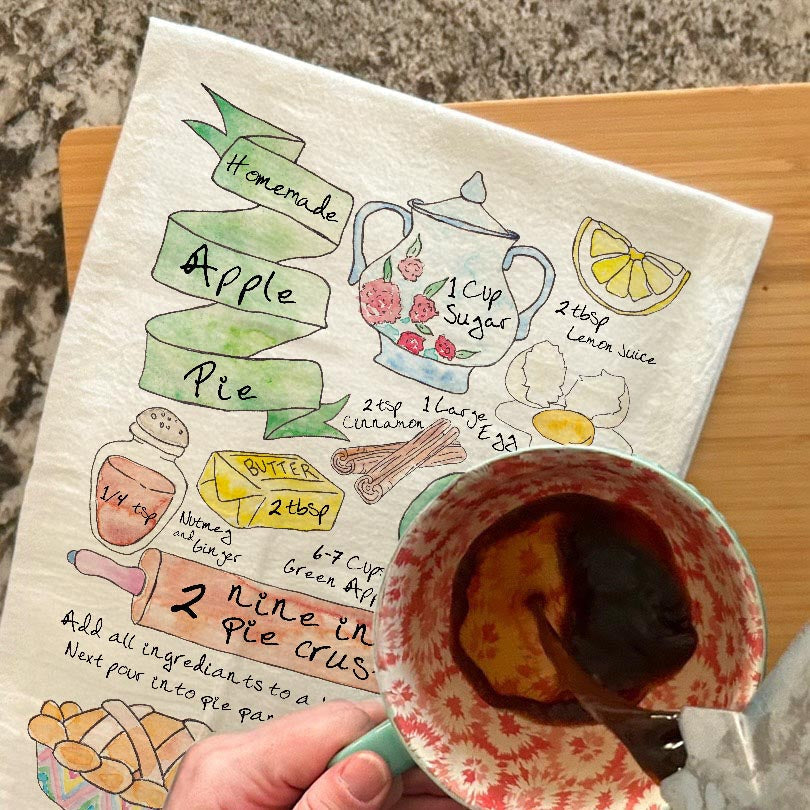 Homemade
Apple
Pie
1 Cup
Sugar
2 tbsp
Lemon Juice
2 tsp
Cinnamon
1 Large
Egg
1/4 tsp
Nutmeg
and Ginger
BUTTER
2 tbsp
6-7 Cup
Green App
2 nine in
Pie crus
Add all ingrediants to a
Next pour into pie pan